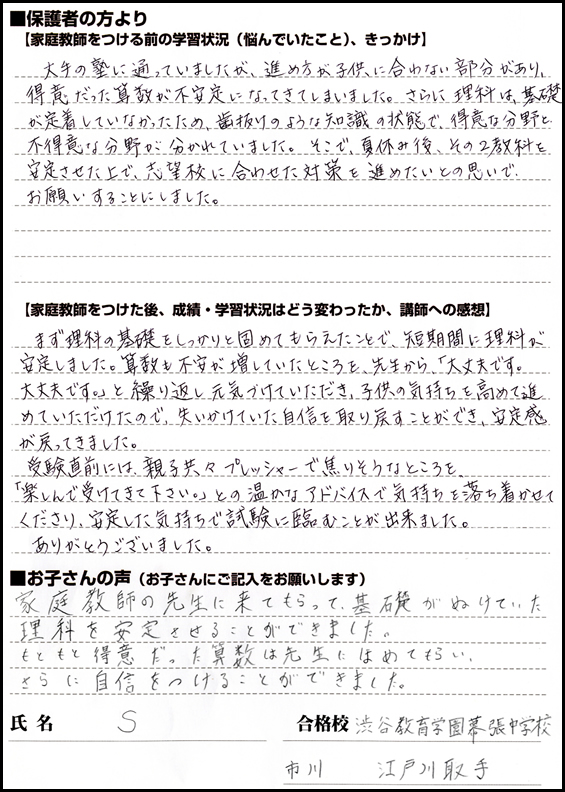 ■保護者の方より
【家庭教師をつける前の学習状況（悩んでいたこと）、きっかけ】
大手の塾に通っていましたが、進め方が子供に合わない部分があり、
得意だった算数が不安定になってきてしまいました。さらに理科は、基礎
が定着していなかったため、歯抜けのような知識の状態で、得意な分野と
不得意な分野が分かれていました。そこで、夏休み後、その2教科を
安定させた上で、志望校に合わせた対策を進めたいとの思いで
お願いすることにしました。
【家庭教師をつけた後、成績・学習状況はどう変わったか、講師への感想】
まず理科の基礎をしっかりと固めてもらえたことで、短期間に理科が
安定しました。算数も不安が増していたところを、先生から、「大丈夫です。
大丈夫です。」と繰り返し元気づけていただき、子供の気持ちを高めて進
めていただけたので、失いかけていた自信を取り戻すことができ、安定感
が戻ってきました。
受験直前には、親子共々プレッシャーで焦りそうなところを、
「楽しんで受けてきて下さい。」との温かなアドバイスで気持ちを落ち着かせて
くださり、安定した気持ちで試験に臨むことが出来ました。
ありがとうございました。
■お子さんの声（お子さんにご記入をお願いします）
家庭教師の先生に来てもらって、基礎がぬけていた
理科を安定させることができました。
もともと得意だった算数は先生にほめてもらい、
さらに自信をつけることができました。
氏名 S 合格校 渋谷教育学園幕張中学校
市川 江戸川取手